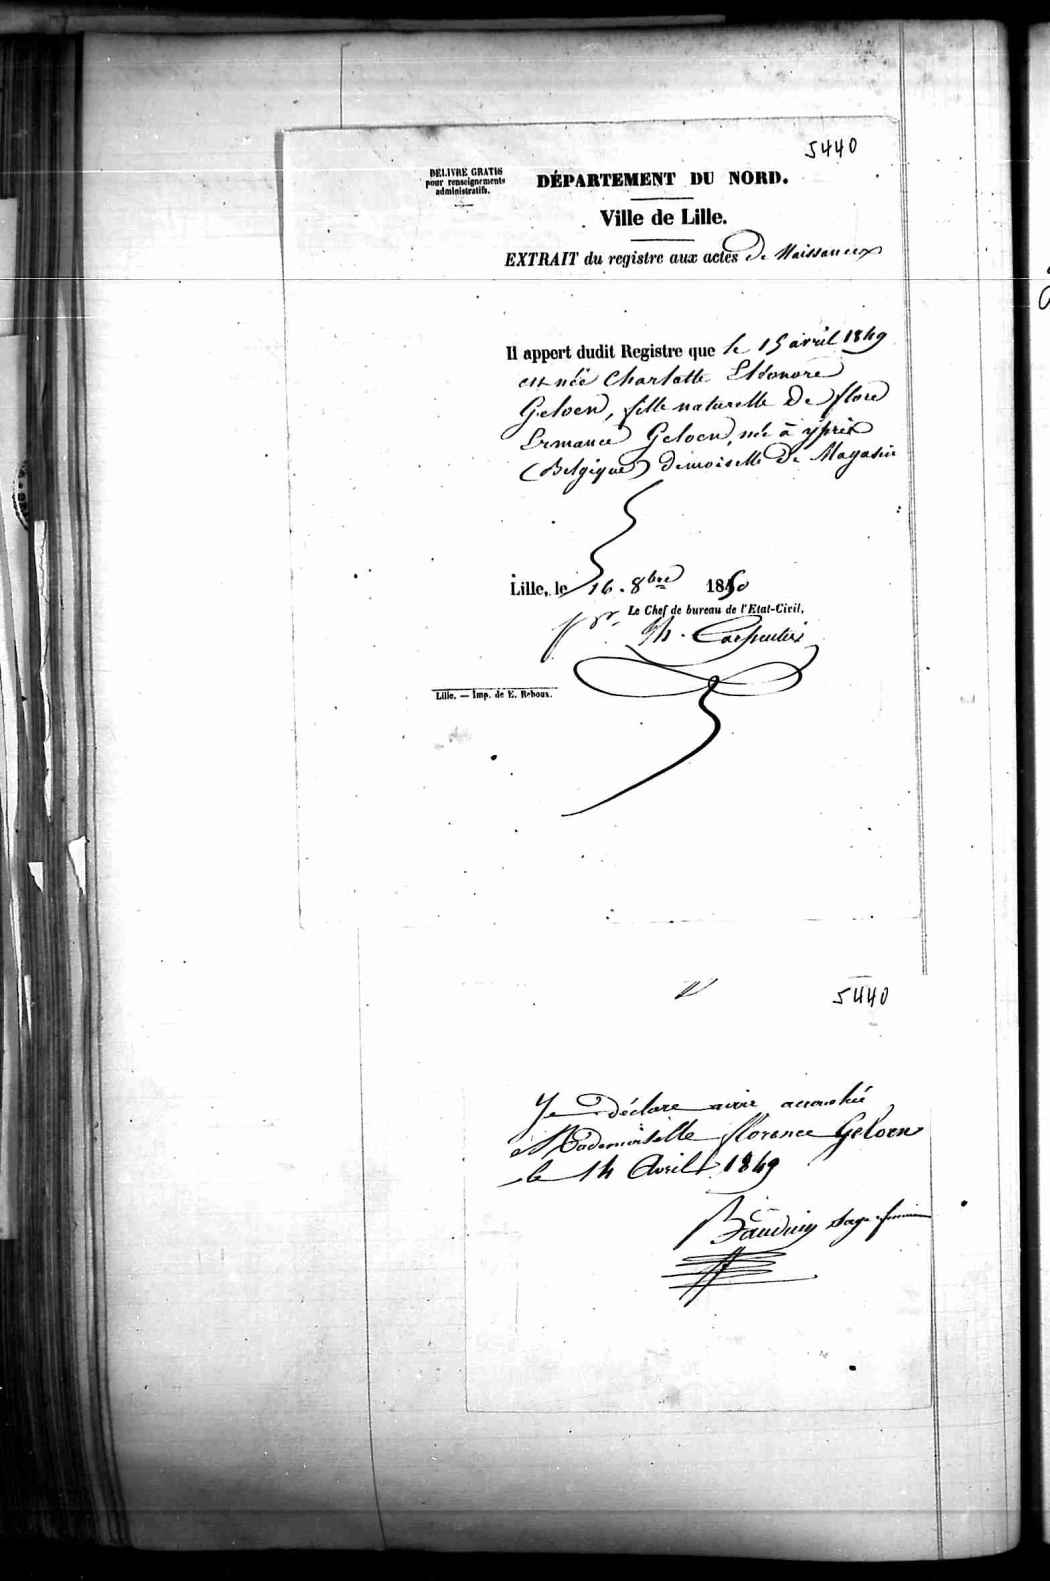 5440
DÉLIVRÉ GRATIS
pour renseignements
administratifs.
DÉPARTEMENT DU NORD.
Ville de Lille.
EXTRAIT du registre aux actes de Naissances
Il appert dudit Registre que le 15 avril 1849
est née Charlotte Eléonore
Geloen, fille naturelle de flore
Ermance Geloen, née à ypres
(Belgique) demoiselle de Magasin
Lille, le 16 8bre 1850
Le Chef de bureau de l'Etat-Civil,
Th. Carpentier
Lille. — Imp. de E. Reboux.
5440
Je déclare avoir accouchée
Mademoiselle florence Geloen
le 14 Avril 1849
Bauduin sage femme